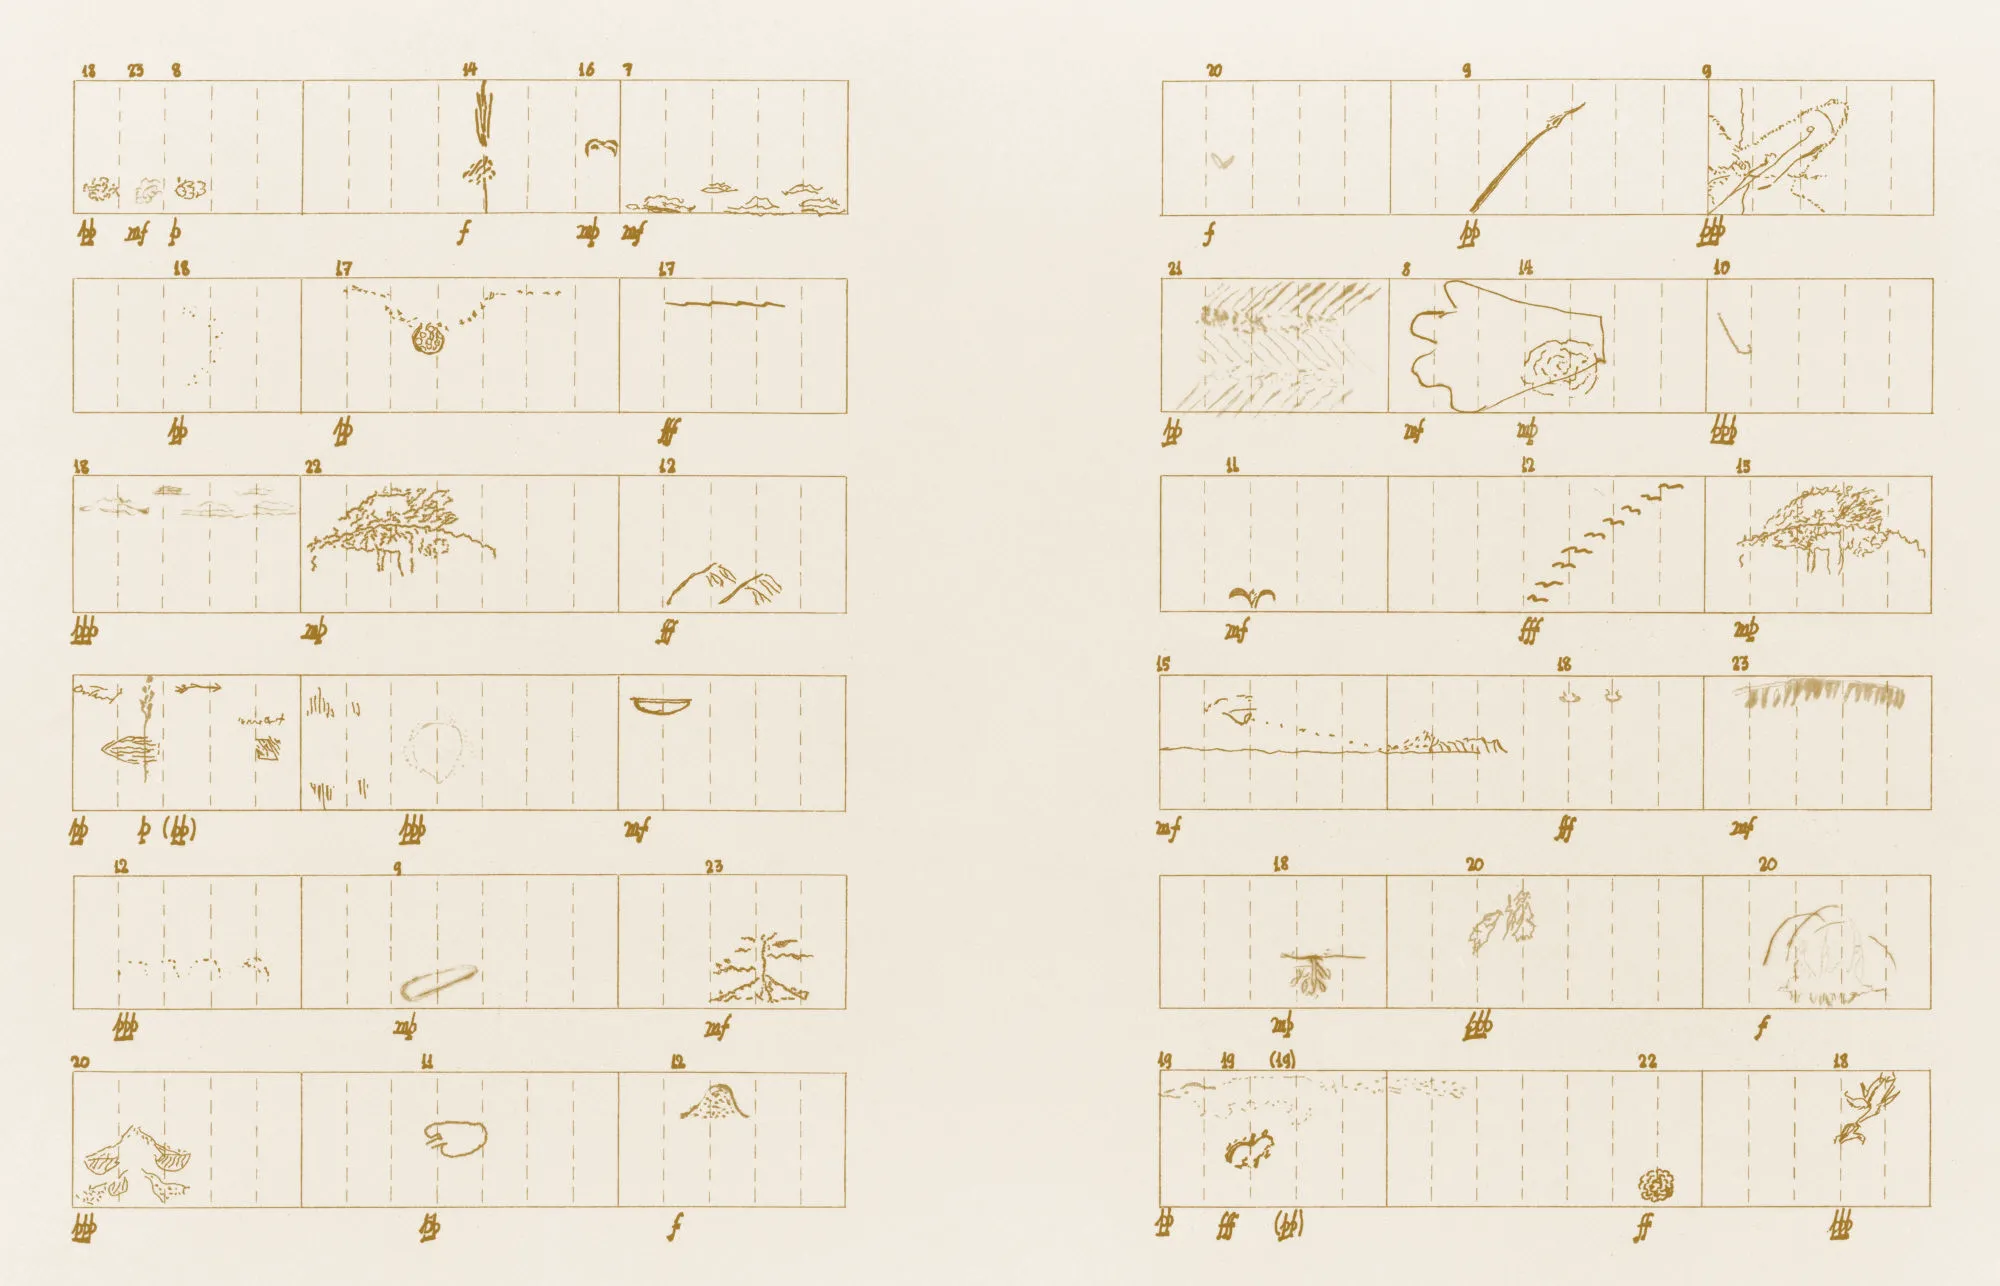 18 23 8 14 16 7
pp mf p f mp mf
18 17 17
pp pp fff
18 22 12
ppp mp fff
pp p (pp) ppp mf
12 9 23
ppp mp mf
20 11 12
ppp pp f
20 9 9
f pp ppp
21 8 14 10
pp mf mp ppp
11 12 15
mf fff mp
15 18 23
mf fff mf
18 20 20
mp ppp f
19 19 (19) 22 18
pp fff (pp) ff ppp